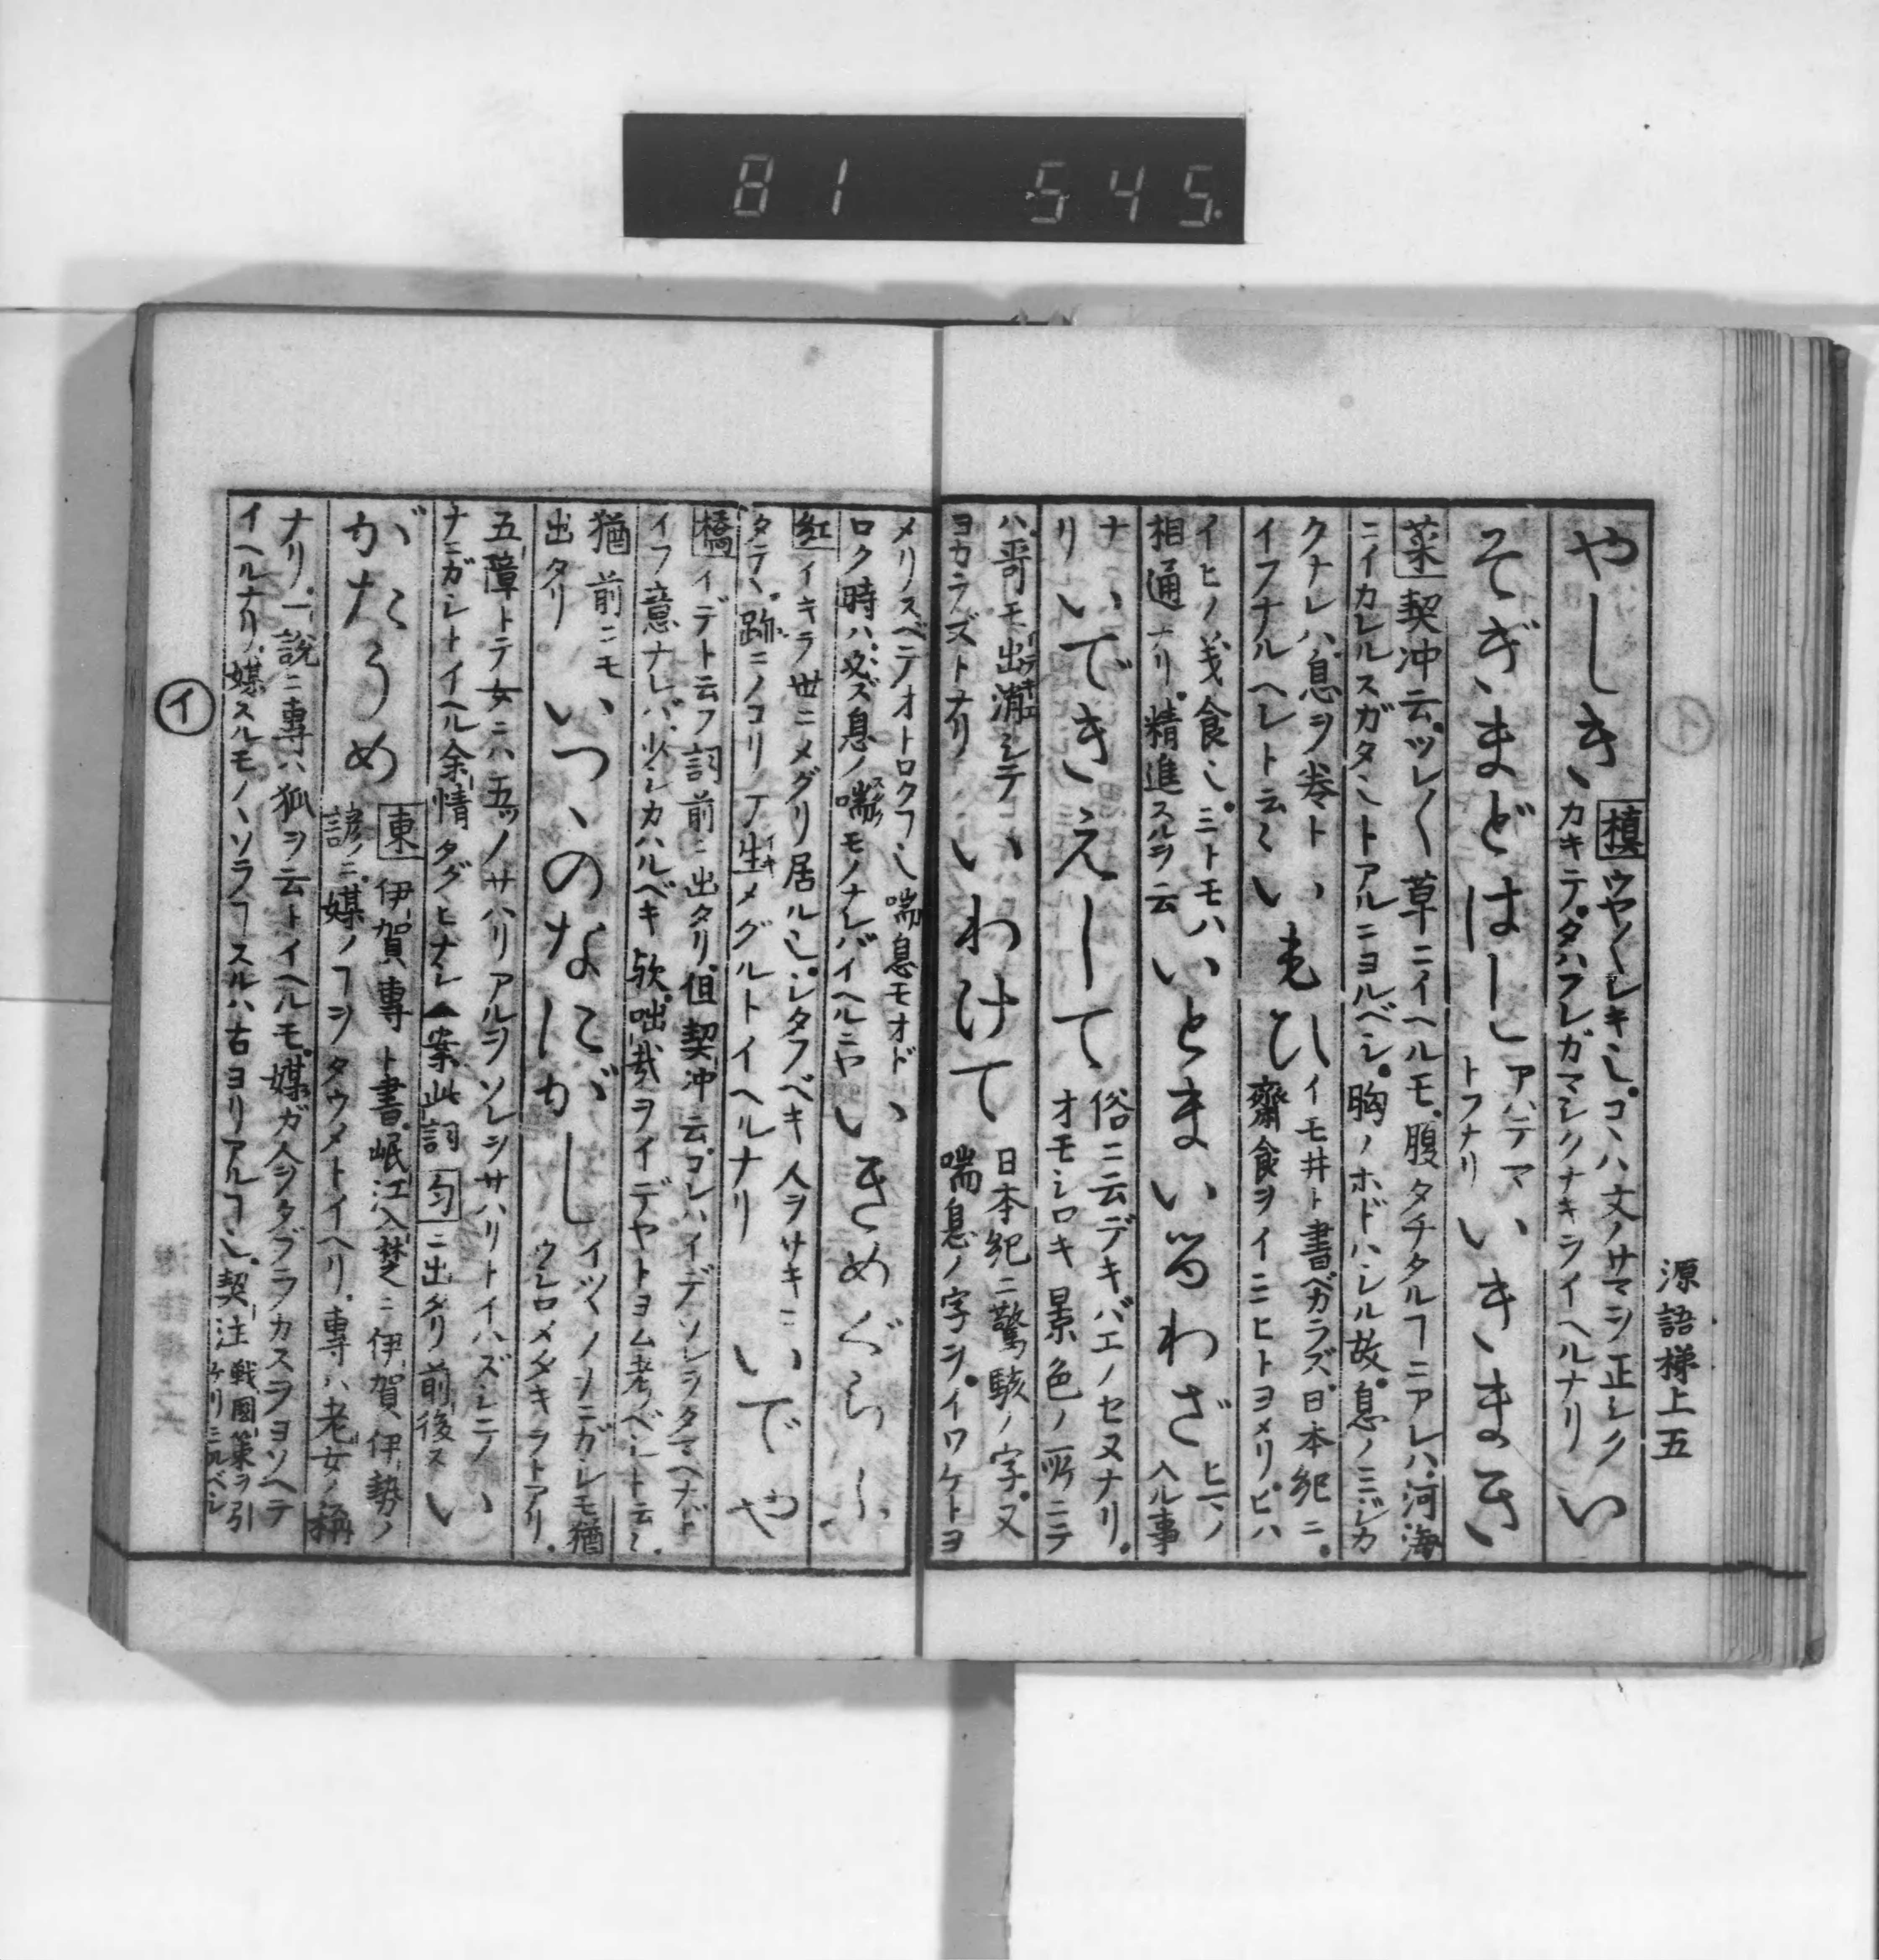 81 545
源語梯上五
やしき 槙 ウヤ〱シキ也コヽハ文ノサマヲ正シク
カキテタハフレガマシクナキヲイヘルナリ い
そぎまどはし アハテマ
トフナリ いきまき
菜 契冲云ツレ〱草ニイヘルモ腹タチタルヿニアレハ河海
ニイカレルスガタ也トアルニヨルベシ胸ノホドハシル故息ノミジカ
クナレハ息ヲ巻ト
イフナルヘレト云々 いもひ イモ井ト書ベカラズ日本紀ニ
齋食ヲイニヒトヨメリヒハ
イヒノ義食也ミトモハ
相通ナリ精進スルヲ云 いとまいるわざ ヒマノ
入ル事
ナ
リ いできえして 俗ニ云デキバエノセヌナリ
オモシロキ景色ノ所ニテ
ハ哥モ出消シテ
ヨカラズトナリ いわけて 日本紀ニ驚駭ノ字又
喘息ノ字ヲイワケトヨ
メリスベテオトロクフ也喘息モオド
ロク時ハ必ズ息ノ喘モノナレバイヘルニヤ いきめぐらふ
紅 イキラ世ニメグリ居ル也レタフベキ人ヲサキニ
タテヽ跡ニノコリノ生メグルトイヘルナリ いでや
橋 イデト云フ詞前ニ出タリ但契冲云コレハイデソレヲタマヘナド
イフ意ナレバ少シカハルベキ歟咄哉ヲイデヤトヨム考ベシト云々
猶前ニモ
出タリ いつヽのなにがし イツヽノナニガシモ猶
ウシロメタキラトアリ
五障トテ女ニハ五ツノサハリアルヲソレヲサハリトイハズシニノ
ナニガシトイヘル余情タグヒナシ▲案此詞 匂 ニ出タリ前後ス い
がたうめ 東 伊賀專ト書岷江入楚ニ伊賀伊勢ノ
諺ニ媒ノヿヲタウメトイヘリ專ハ老女ノ稱
ナリ一説ニ專ハ狐ヲ云トイヘルモ媒ガ人ヲタブラカスヲヨソヘテ
イヘルナリ媒スルモノヽソラヿスルハ古ヨリアルヿ也契注戰國策ヲ引
ケリミルベシ
イ